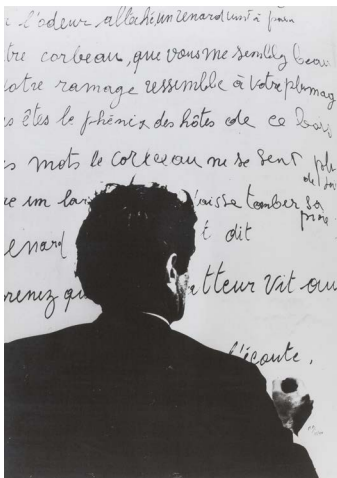 l'odeur alléché un renard vint à
tre corbeau, que vous me semblez beau
otre ramage ressemble à votre plumag
s êtes le phénix des hôtes de ce bois
s mots le corbeau ne se sent plu
de
re un lar aisse tomber sa
proie
enard t dit
renez qu tteur vit au
l'écoute.